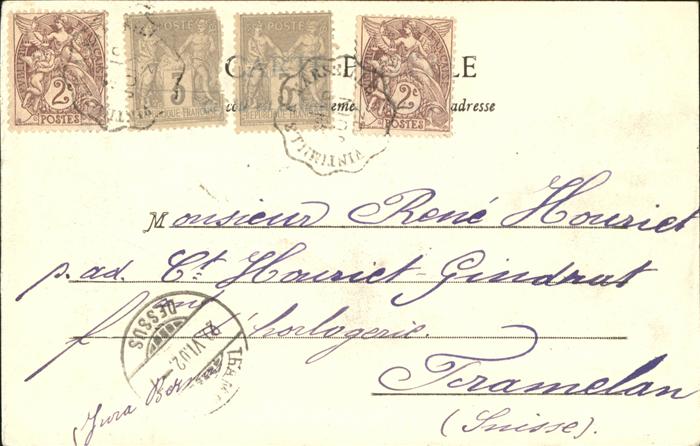 RÉPUBLIQUE FRANÇAISE
2c
POSTES
POSTE
3
RÉPUBLIQUE FRANÇAISE
POSTE
3
RÉPUBLIQUE FRANÇAISE
2c
POSTES
CARTE POSTALE
adresse
MARSE
VINTIMILLE
Monsieur René Houriet
p. ad. Ct Houriet-Gindrat
f d'horlogerie.
Tramelan
(Suisse).
Jura Bernois
DESSUS
VI.02
TRAM